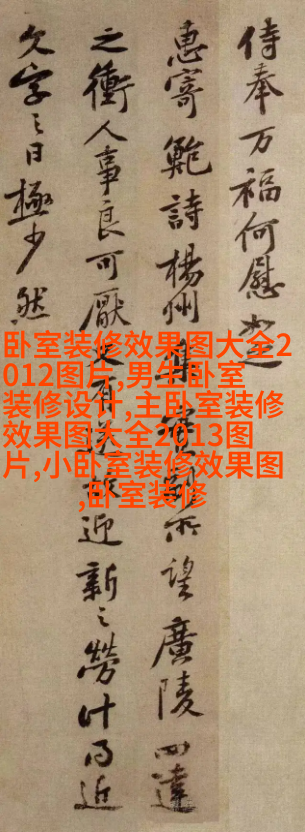 侍奉万福何慰如之
惠寄鮑詩楊州集實副所望廣陵四達
之衝人事良可厭又有送故迎新之勞計得近
文字之日極少然
卧室装修效果图大全2
012图片,男生卧室
装修设计,主卧室装修
效果图大全2013图
片,小卧室装修效果图
,卧室装修